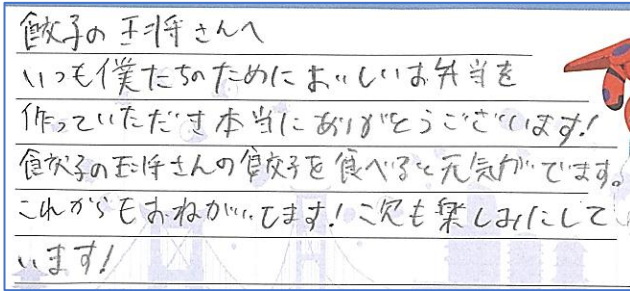 餃子の王将さんへ
いつも僕たちのためにおいしいお弁当を
作っていただき本当にありがとうございます!
餃子の王将さんの餃子を食べると元気がでます。
これからもおねがいします!次も楽しみにして
います!